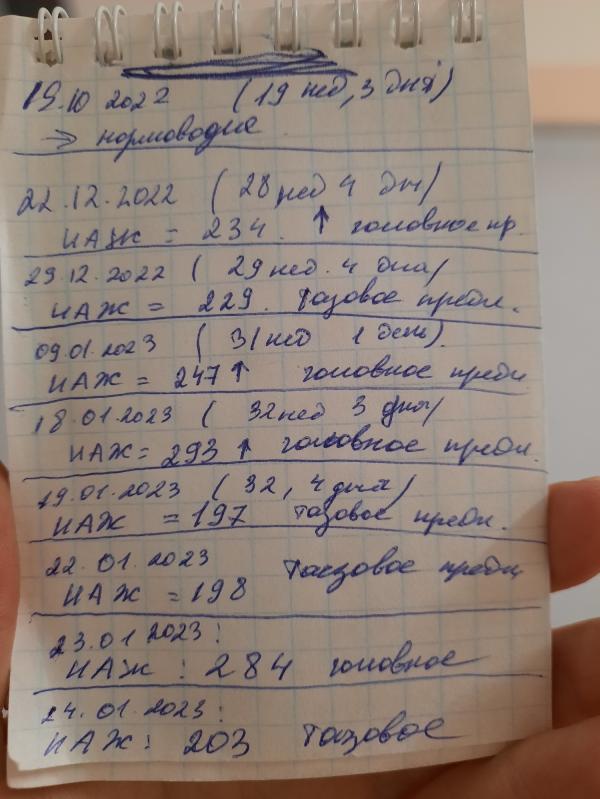 19.10 2022 (19 нед, 3 дня)
→ нормоводие
22.12.2022 (28 нед 4 дн)
ИАЖ = 234. ↑ головное пр.
29.12.2022 ( 29 нед. 4 дня)
ИАЖ = 229. Тазовое предл.
09.01.2023 ( 31 нед 1 день).
ИАЖ = 247 ↑ головное предл
18.01.2023 ( 32 нед 3 дня)
ИАЖ = 293 ↑ головное предл.
19.01.2023 ( 32, 4 дня)
ИАЖ = 197 тазовое предл.
22.01.2023 Тазовое предл
ИАЖ = 198
23.01 2023:
ИАЖ : 284 головное
24.01.2023:
ИАЖ: 203 тазовое